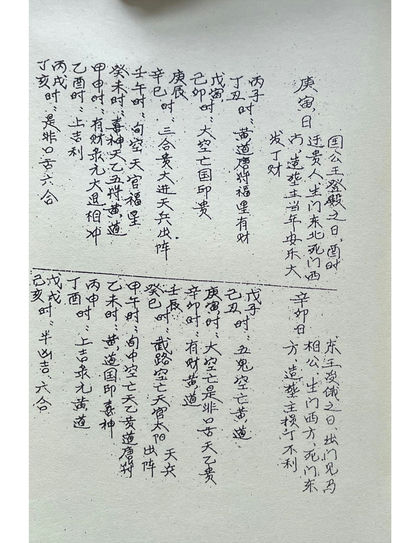 庚寅日
国公王登殿之日,酉时
迁贵人生门东北死门西
内造葬主当年安乐大
发丁财
丙子时:黄道唐符福星有财
丁丑时
戊寅时
己卯时:大空亡国印贵
庚辰
辛巳时:三合贵大进天兵出阵
壬午时:旬空天官福星
癸未时:喜神天乙五符黄道
甲申时:有财录元大退相冲
乙酉时:上吉利
丙戌时
丁亥时:是非口舌六合
辛卯日
东王没俄之日,出门见
相公,生门西方,死门东
方造葬主损丁不利
戊子时:五鬼空亡黄道
己丑
庚寅时:大空亡是非口舌天乙贵
辛卯时:有财黄道
壬辰
癸巳时:截路空亡天官太阳天兵
出阵
甲午时:旬中空亡天乙黄道唐符
乙未时:黄道国印喜神
丙申时:上吉录元黄道
丁酉
戊戌时
己亥时:半凶吉六合